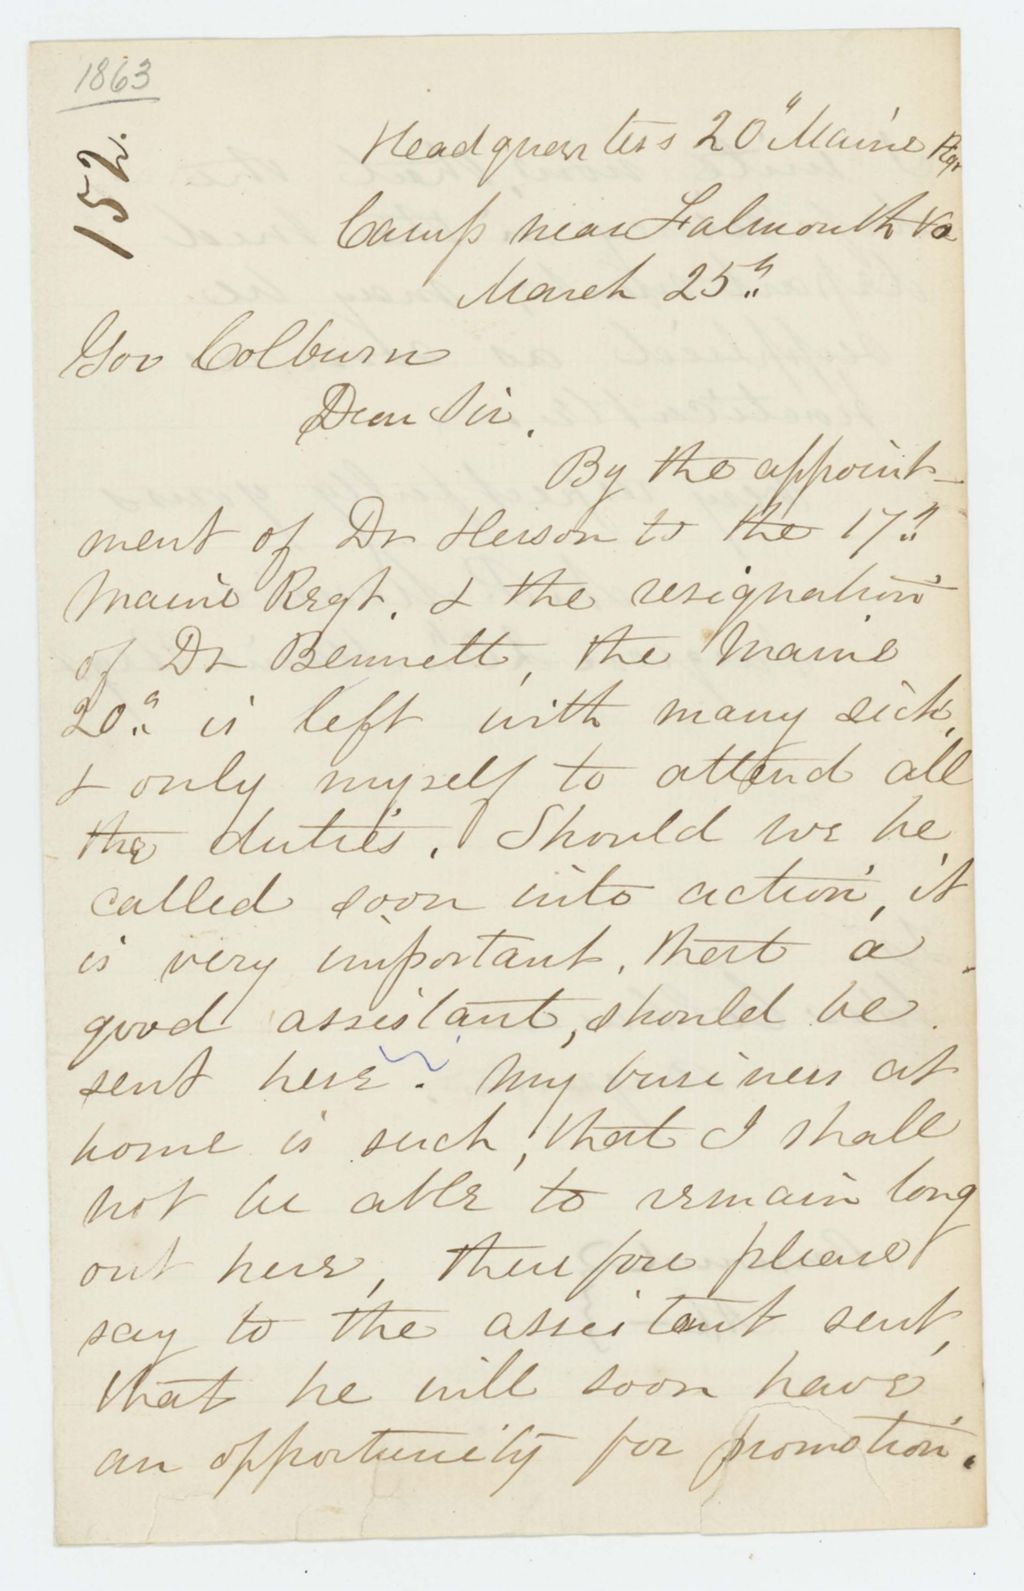 1863
152.
Headquarters 20" Maine Rgt
Camp near Falmouth Va
March 25"
Gov Colburn
Dear Sir.
By the appoint-
ment of Dr Herson to the 17"
Maine Regt. & the resignation
of Dr Bennett, the Maine
20" is left with many sick,
& only myself to attend all
the duties. Should we be
called soon into action, it
is very important, that a
good assistant, should be
sent here. My business at
home is such, that I shall
not be able to remain long
out here, therefore please
say to the assistant sent,
that he will soon have
an opportunity for promotion.